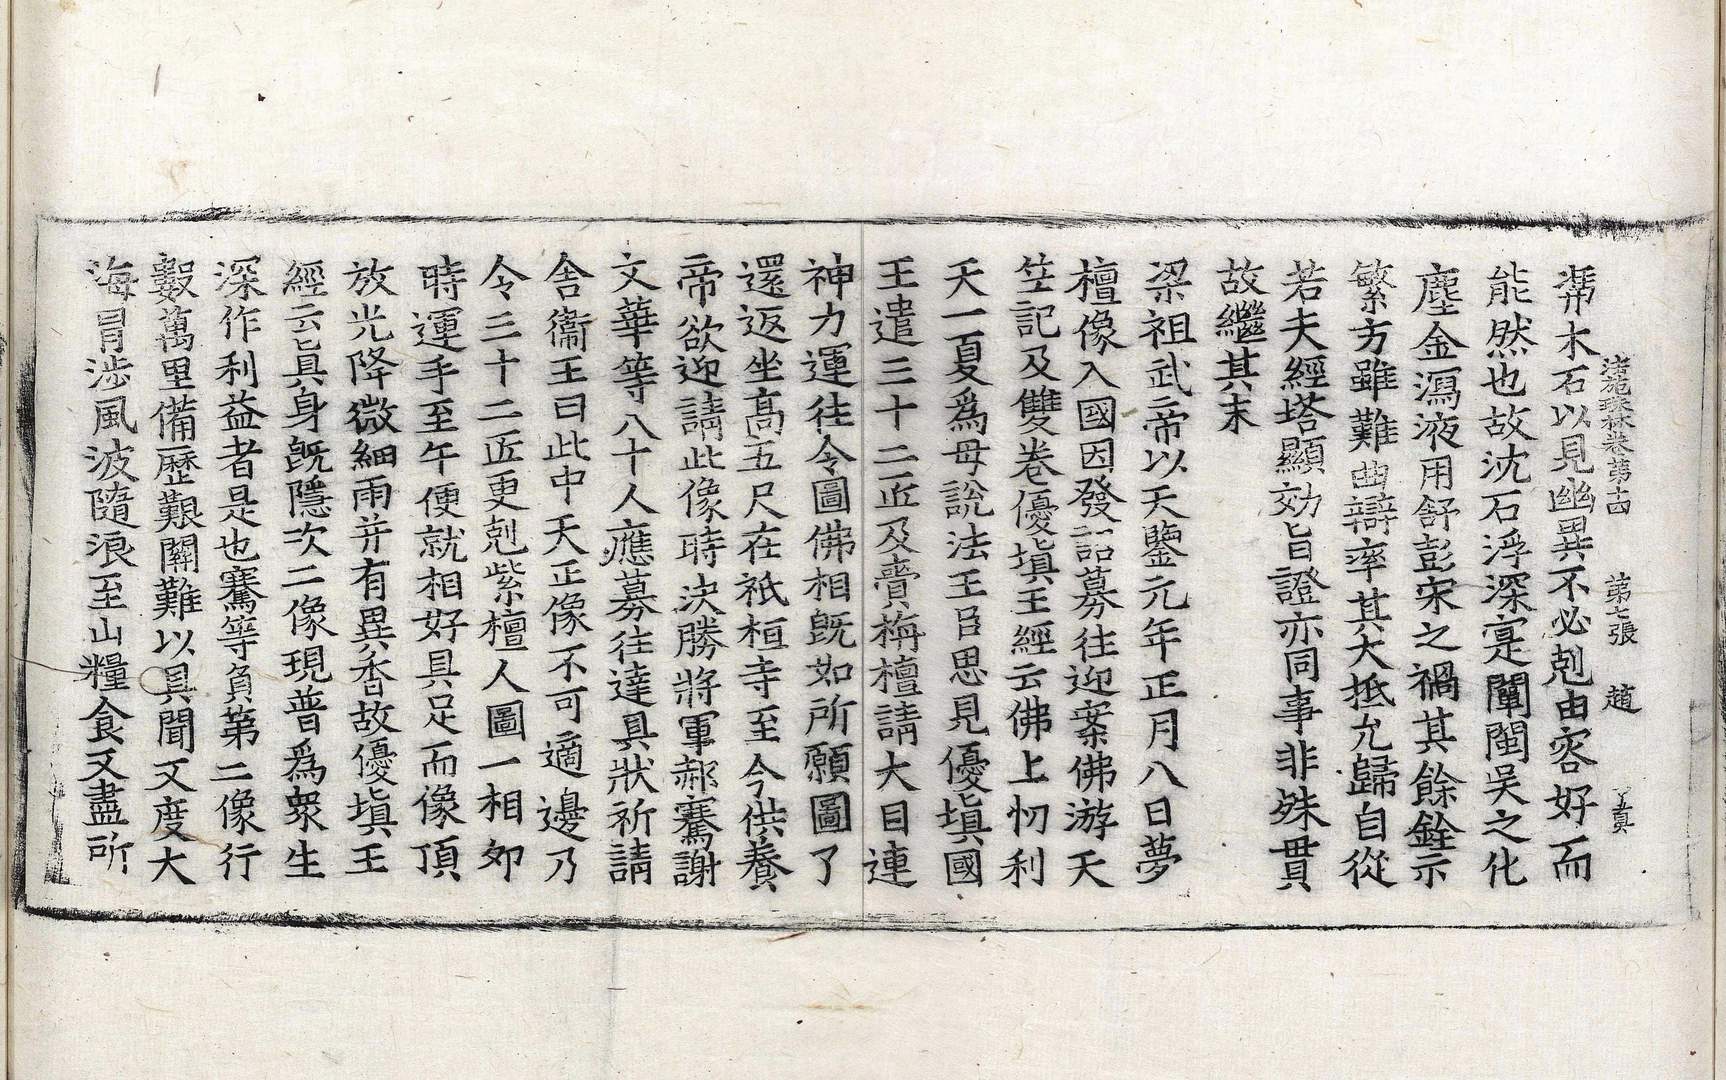 法苑珠林卷第十四　第七張　趙
弊木石以見幽異不必剋由容好而
能然也故沈石浮深寔闡閩吳之化
塵金瀉液用舒彭宋之禍其餘銓示
繁方雖難曲辯率其大抵允歸自從
若夫經塔顯効旨證亦同事非殊貫
故繼其末
梁祖武帝以天鑒元年正月八日夢
檀像入國因發詔募往迎案佛游天
竺記及雙卷優塡王經云佛上忉利
天一夏爲母說法王臣思見優塡國
王遣三十二匠及賷栴檀請大目連
神力運往令圖佛相旣如所願圖了
還返坐高五尺在祇桓寺至今供養
帝欲迎請此像時決勝將軍郝騫謝
文華等八十人應募往達具狀祈請
舍衞王曰此中天正像不可適邊乃
令三十二匠更剋紫檀人圖一相卯
時運手至午便就相好具足而像頂
放光降微細雨并有異香故優塡王
經云眞身旣隱次二像現普爲衆生
深作利益者是也騫等負第二像行
數萬里備歷艱關難以具聞又度大
海冒涉風波隨浪至山糧食又盡所